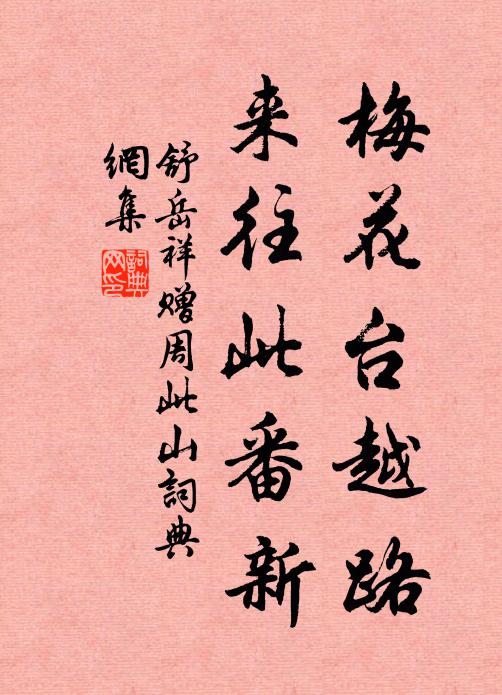 梅花台越路
来往此番新
舒岳祥赠周此山詞典
網集
詞典网印